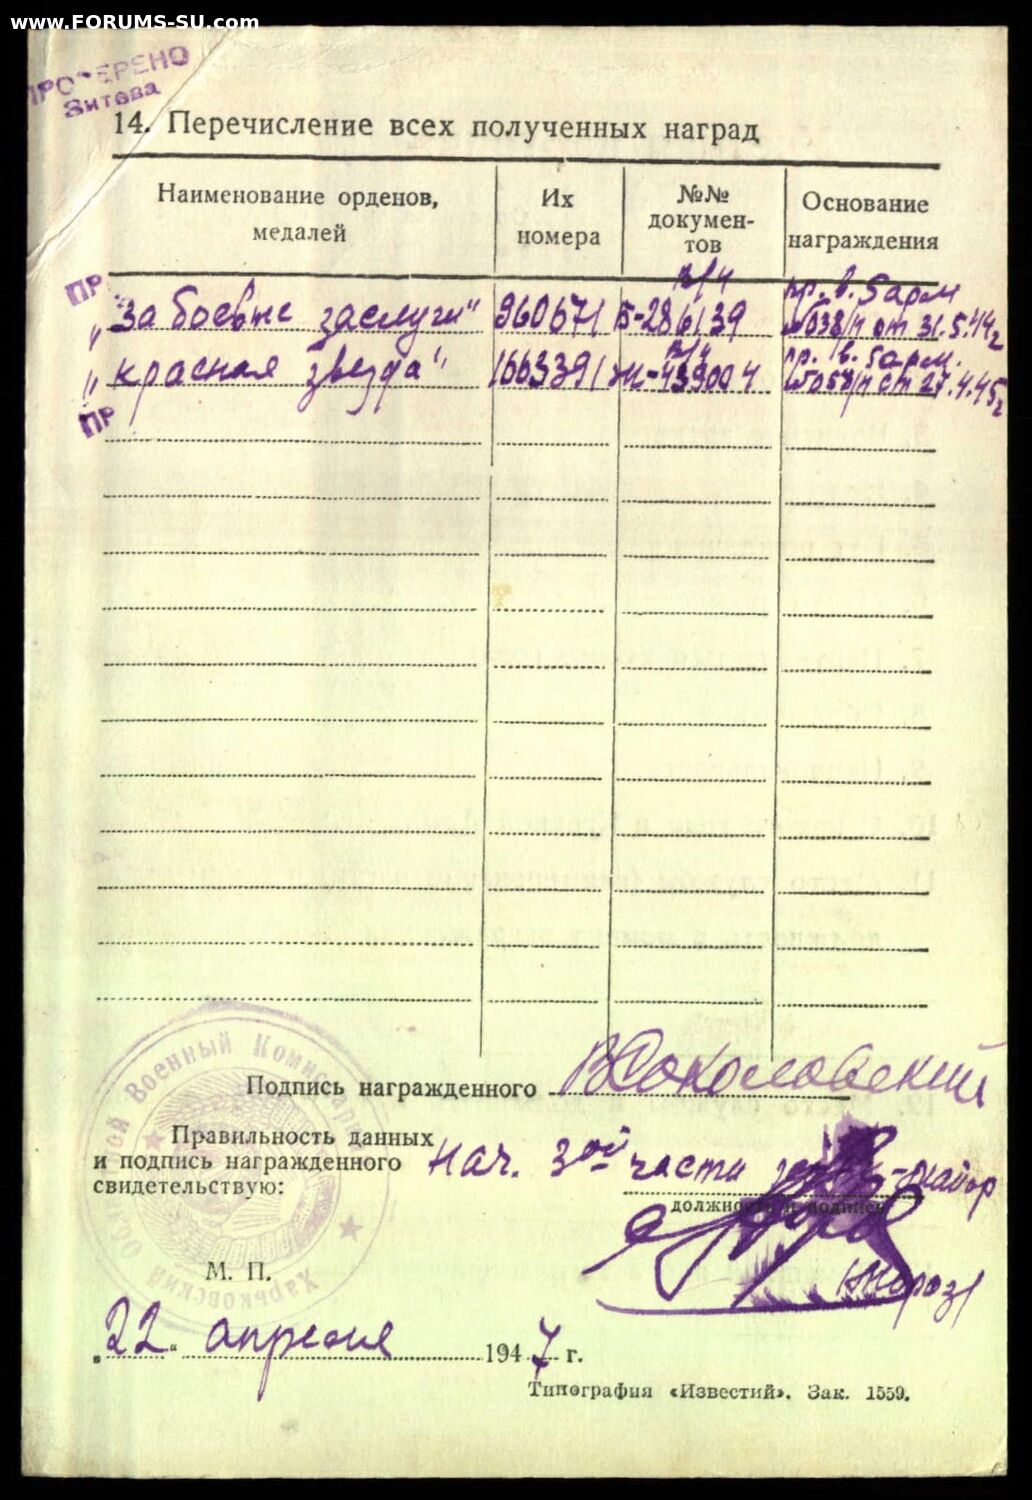 www.FORUMS-SU.com
ПРОВЕРЕНО
Зитева
14. Перечисление всех полученных наград
Наименование орденов, медалей
Их номера
№№ документов
Основание награждения
ПР
„За боевые заслуги“ 960671 Б-286139 пр. в. 5 арм №038/н от 31.5.44г
„Красная звезда“ 1663391 Ж-439004 пр. в. 5 арм. №058/н от 27.4.45г
ПР
Подпись награжденного ВСоколовский
Правильность данных
и подпись награжденного
свидетельствую:
нач. 3ой части -майор
должность и подпись
/Мороз/
Харьковский Военный
М. П.
„22“ апреля 1947 г.
Типография «Известий». Зак. 1559.